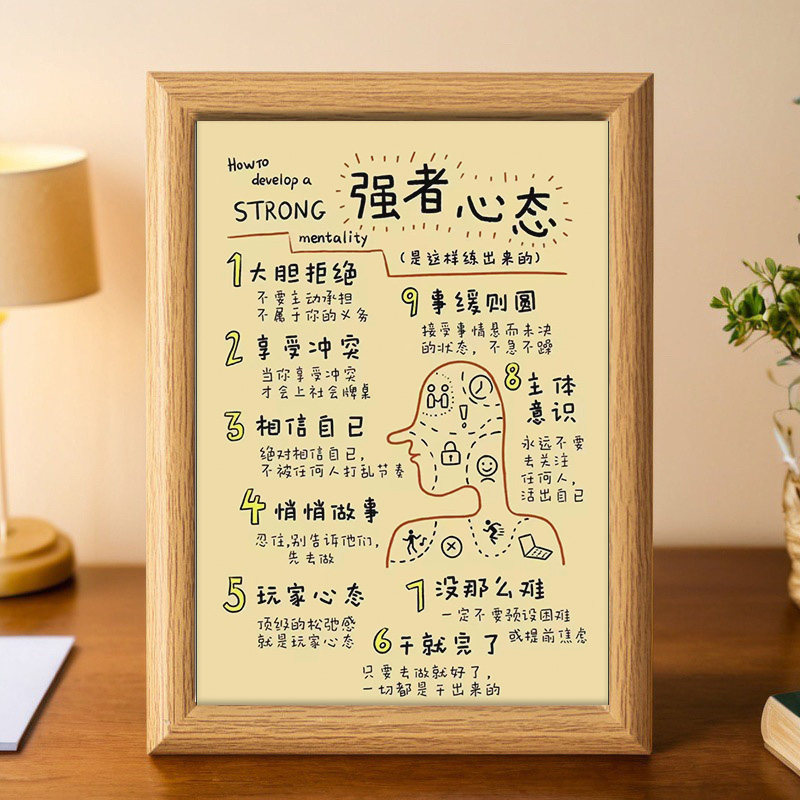 How to
develop a
STRONG
mentality
强者心态
(是这样练出来的)
1 大胆拒绝
不要主动承担
不属于你的义务
2 享受冲突
当你享受冲突
才会上社会牌桌
3 相信自己
绝对相信自己,
不被任何人打乱节奏
4 悄悄做事
忍住,别告诉他们,
先去做
5 玩家心态
顶级的松弛感
就是玩家心态
6 干就完了
只要去做就好了,
一切都是干出来的
7 没那么难
一定不要预设困难
或提前焦虑
8 主体
意识
永远不要
去关注
任何人,
活出自己
9 事缓则圆
接受事情悬而未决
的状态,不急不躁